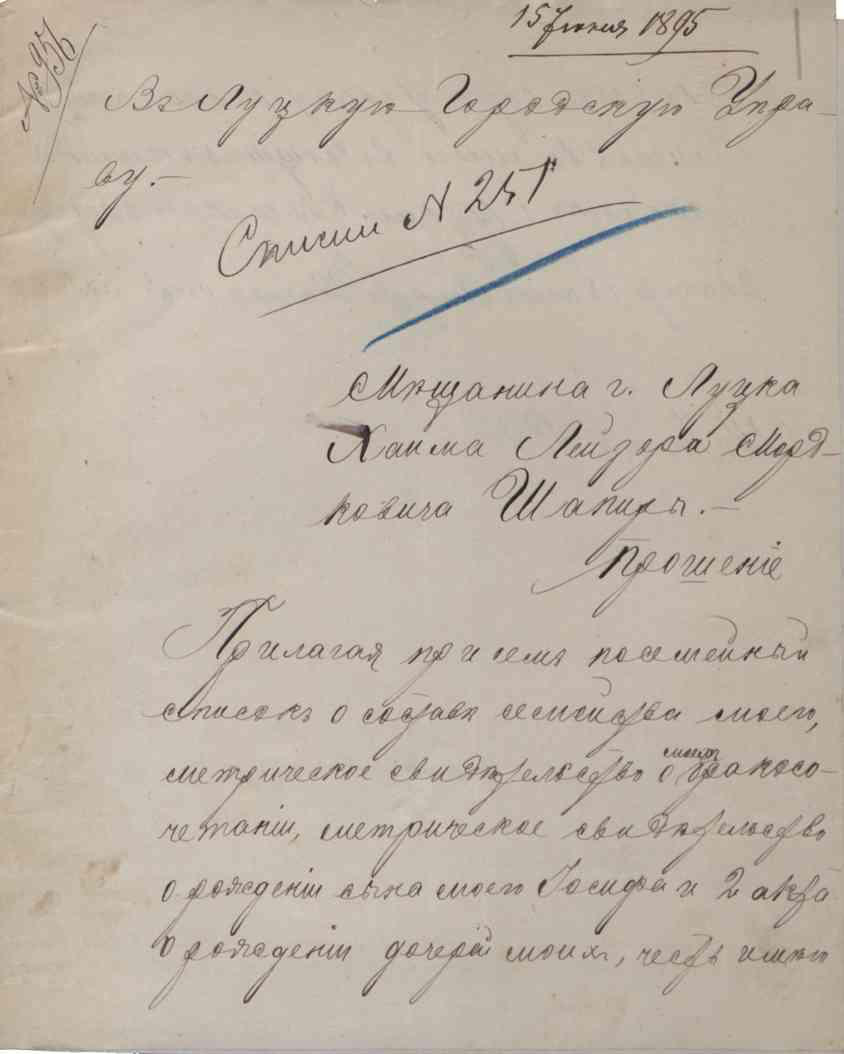 15 Июня 1895
№ 956
Въ Луцкую Городскую Упра-
ву.-
Списки N 251
Мѣщанина г. Луцка
Хаима Лейзора Морд-
ковича Шапиры.-
Прошеніе
Прилагая при семъ посемейный
списокъ о составѣ семейства моего,
метрическое свидѣтельство о моемъ бракосо-
четаніи, метрическое свидѣтельство
о рожденіи сына моего Іосифа и 2 акта
о рожденіи дочерей моихъ, честь имѣю